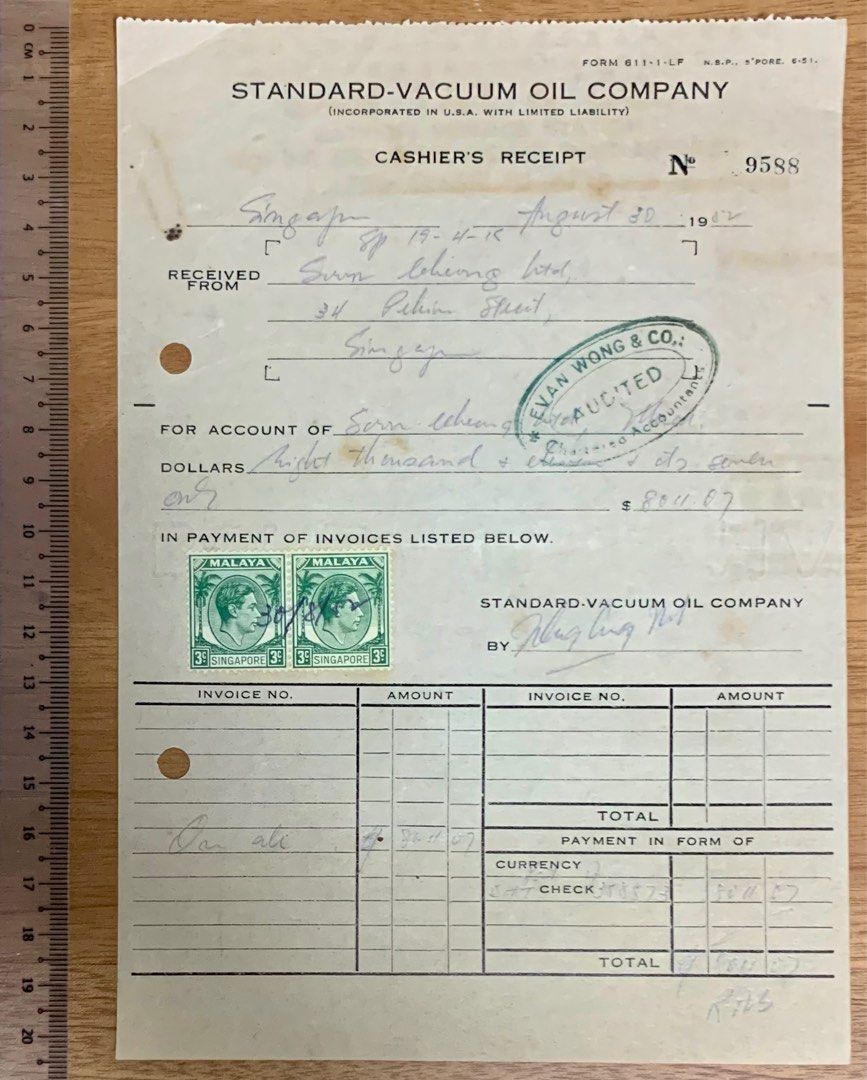 FORM 611-1-LF N.S.P., S'PORE. 6-51.
STANDARD-VACUUM OIL COMPANY
(INCORPORATED IN U.S.A. WITH LIMITED LIABILITY)
CASHIER'S RECEIPT № 9588
August 30 1952
RECEIVED FROM Soon Cheong Ltd,
34 Pekin Street,
EVAN WONG & CO.,
AUDITED
Chartered Accountants
FOR ACCOUNT OF Soon Cheong Ltd,
DOLLARS Eight thousand & eleven & cts seven
only $ 8011.07
IN PAYMENT OF INVOICES LISTED BELOW.
MALAYA MALAYA
30/8/52
3c SINGAPORE 3c 3c SINGAPORE 3c
STANDARD-VACUUM OIL COMPANY
BY
INVOICE NO. AMOUNT INVOICE NO. AMOUNT
TOTAL
On a/c $ 8011 07
PAYMENT IN FORM OF
CURRENCY
CHECK 8011 07
TOTAL $ 8011 07
0 CM 1 2 3 4 5 6 7 8 9 10 11 12 13 14 15 16 17 18 19 20